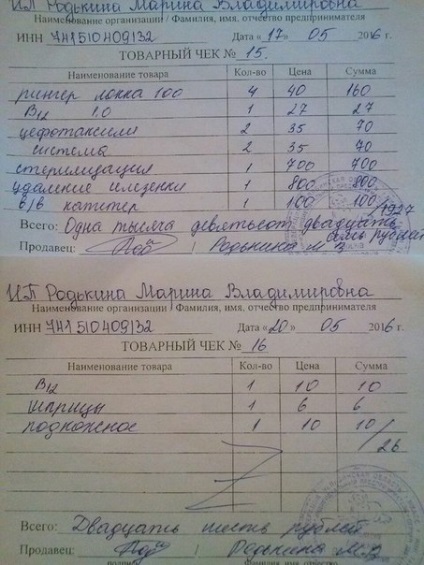 ИП Родькина Марина Владимировна
Наименование организации / Фамилия, имя, отчество предпринимателя
ИНН 741510409132 Дата «17» 05 2016 г.
ТОВАРНЫЙ ЧЕК № 15.
Наименование товара Кол-во Цена Сумма
рингер локка 100 4 40 160
В12 1.0 1 27 27
цефотаксим 2 35 70
система 2 35 70
стерилизация 1 700 700
удаление селезенки 1 800 800
в/в катитер 1 100 100
1927
Всего: Одна тысяча девятьсот двадцать
семь рублей
Продавец: / Родькина М.В
ИП Родькина Марина Владимировна
Наименование организации / Фамилия, имя, отчество предпринимателя
ИНН 741510409132 Дата «20» 05 2016 г.
ТОВАРНЫЙ ЧЕК № 16.
Наименование товара Кол-во Цена Сумма
В12 1 10 10
шприцы 1 6 6
подкожное 1 10 10
26
Всего: Двадцать шесть рублей
Продавец: / Родькина М.В
подпись фамилия, имя, отчество